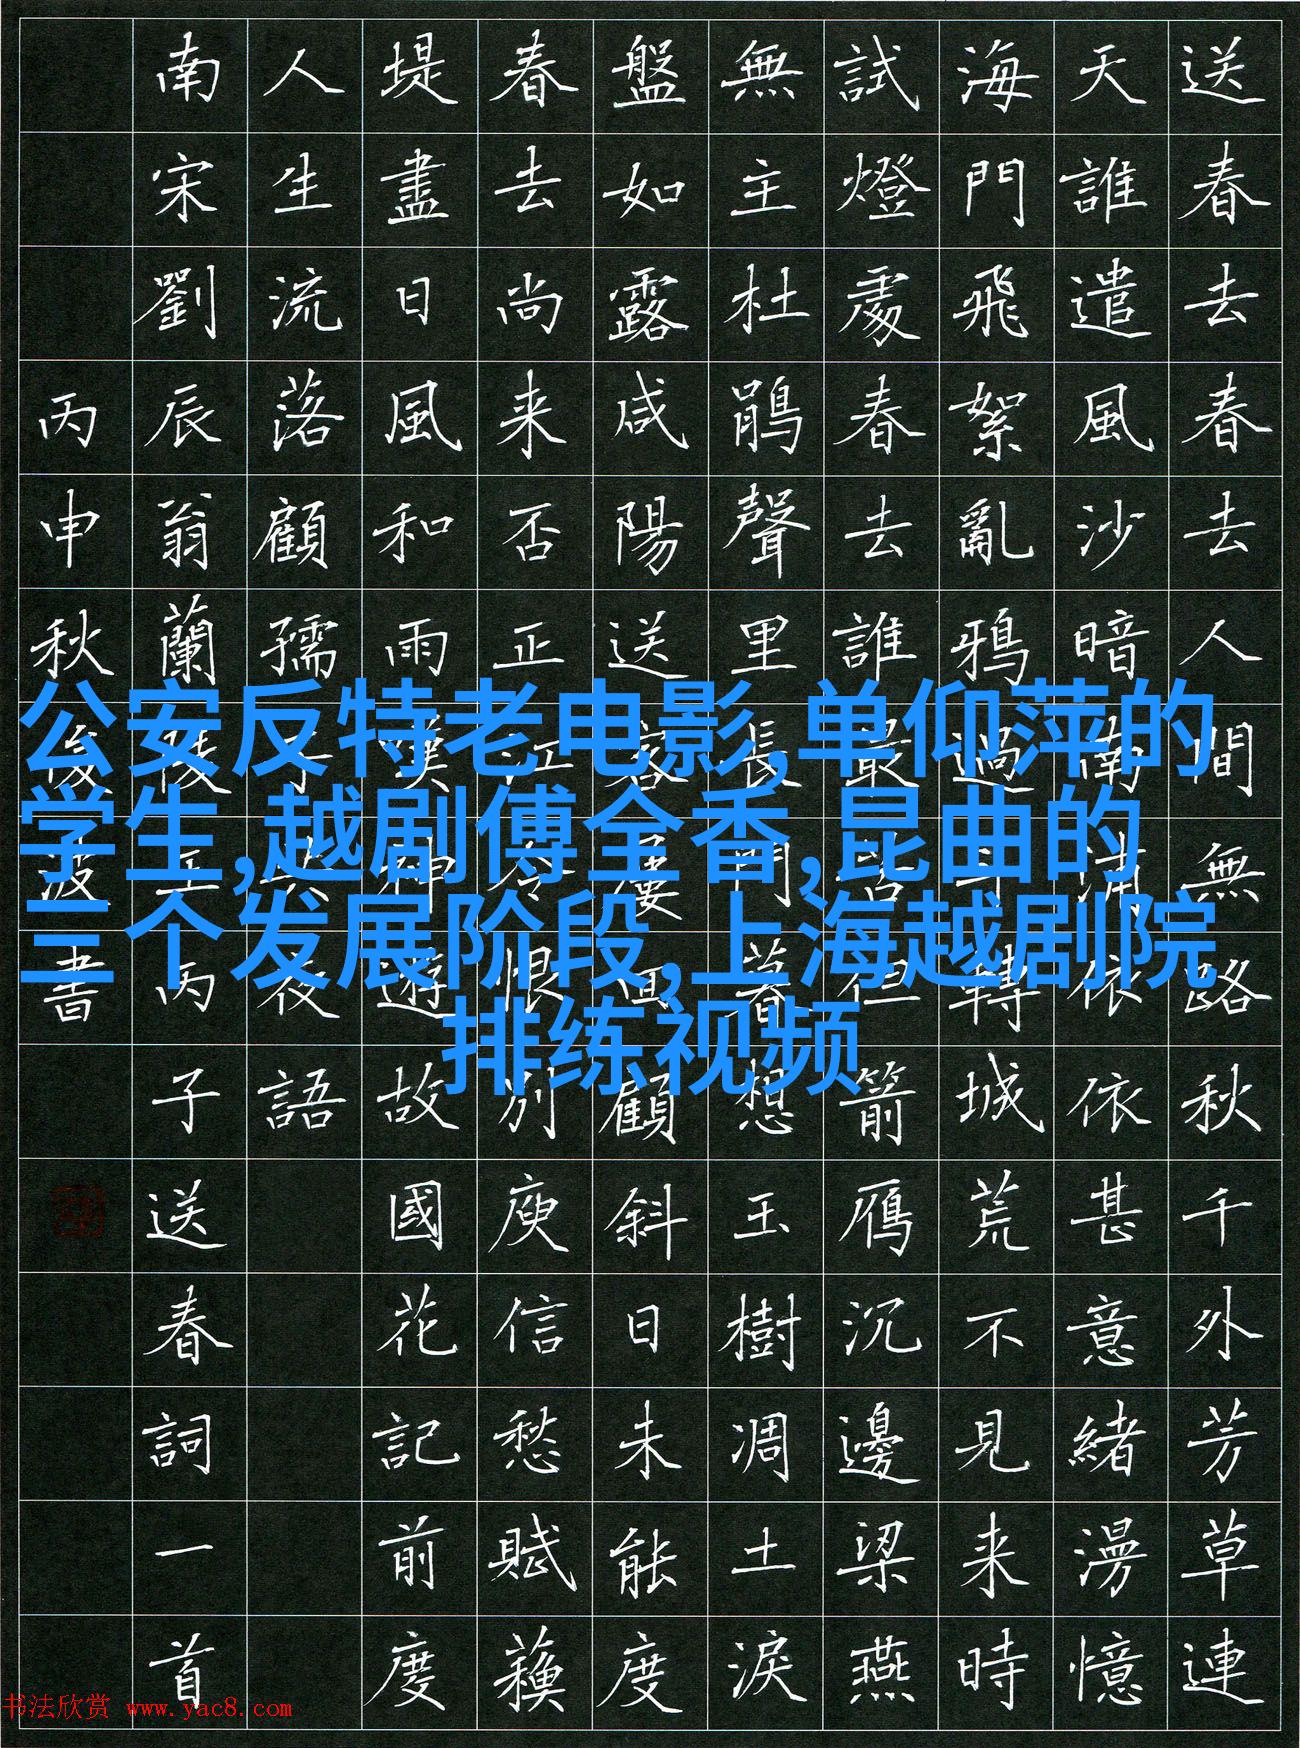 送春去春去人間無路秋千外芳草連
天誰遣風沙暗南浦依依甚意緒漫憶
海門飛絮亂鴉過斗轉城荒不見来時
試燈處春去誰最苦但箭雁沉邊梁燕
無主杜鵑聲里長門暮想玉樹凋土淚
盤如露咸陽送客屢回顧斜日未能度
春去尚来否正江令恨別庾信愁賦蘇
堤盡日風和雨嘆神遊故國花記前度
人生流落顧孺子共夜語
南宋劉辰翁蘭陵王丙子送春詞一首
丙申秋俊波書
公安反特老电影,单仰萍的
学生,越剧傅全香,昆曲的
三个发展阶段,上海越剧院
排练视频
书法欣赏 www.yac8.com